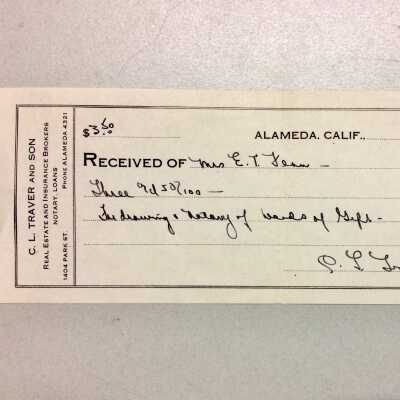 C. L. TRAVER AND SON
REAL ESTATE AND INSURANCE BROKERS
NOTARY, LOANS
1404 PARK ST. PHONE ALAMEDA 4321
$3.50
ALAMEDA, CALIF.,
RECEIVED OF Mrs E. T.
Three 50/100 —
drawing & Notary of of Gift -
C. L.